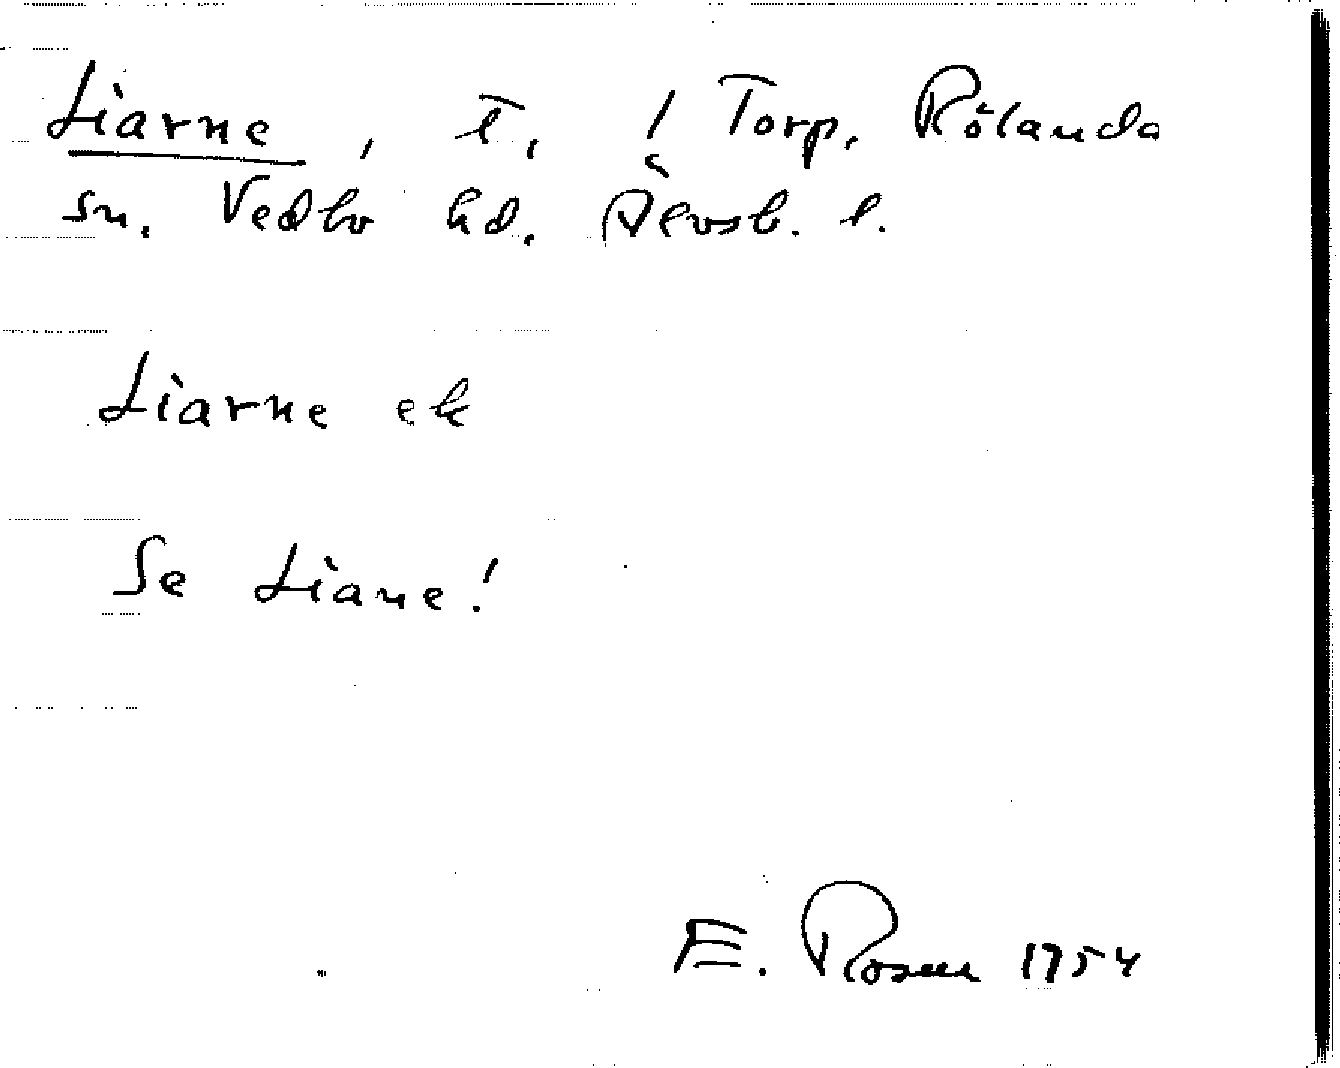 Liarne, T, / Torp, Rölanda
sn. Vedbo hd. Älvsb. l.
Liarne ek
Se Liane!
E. Rosen 1954